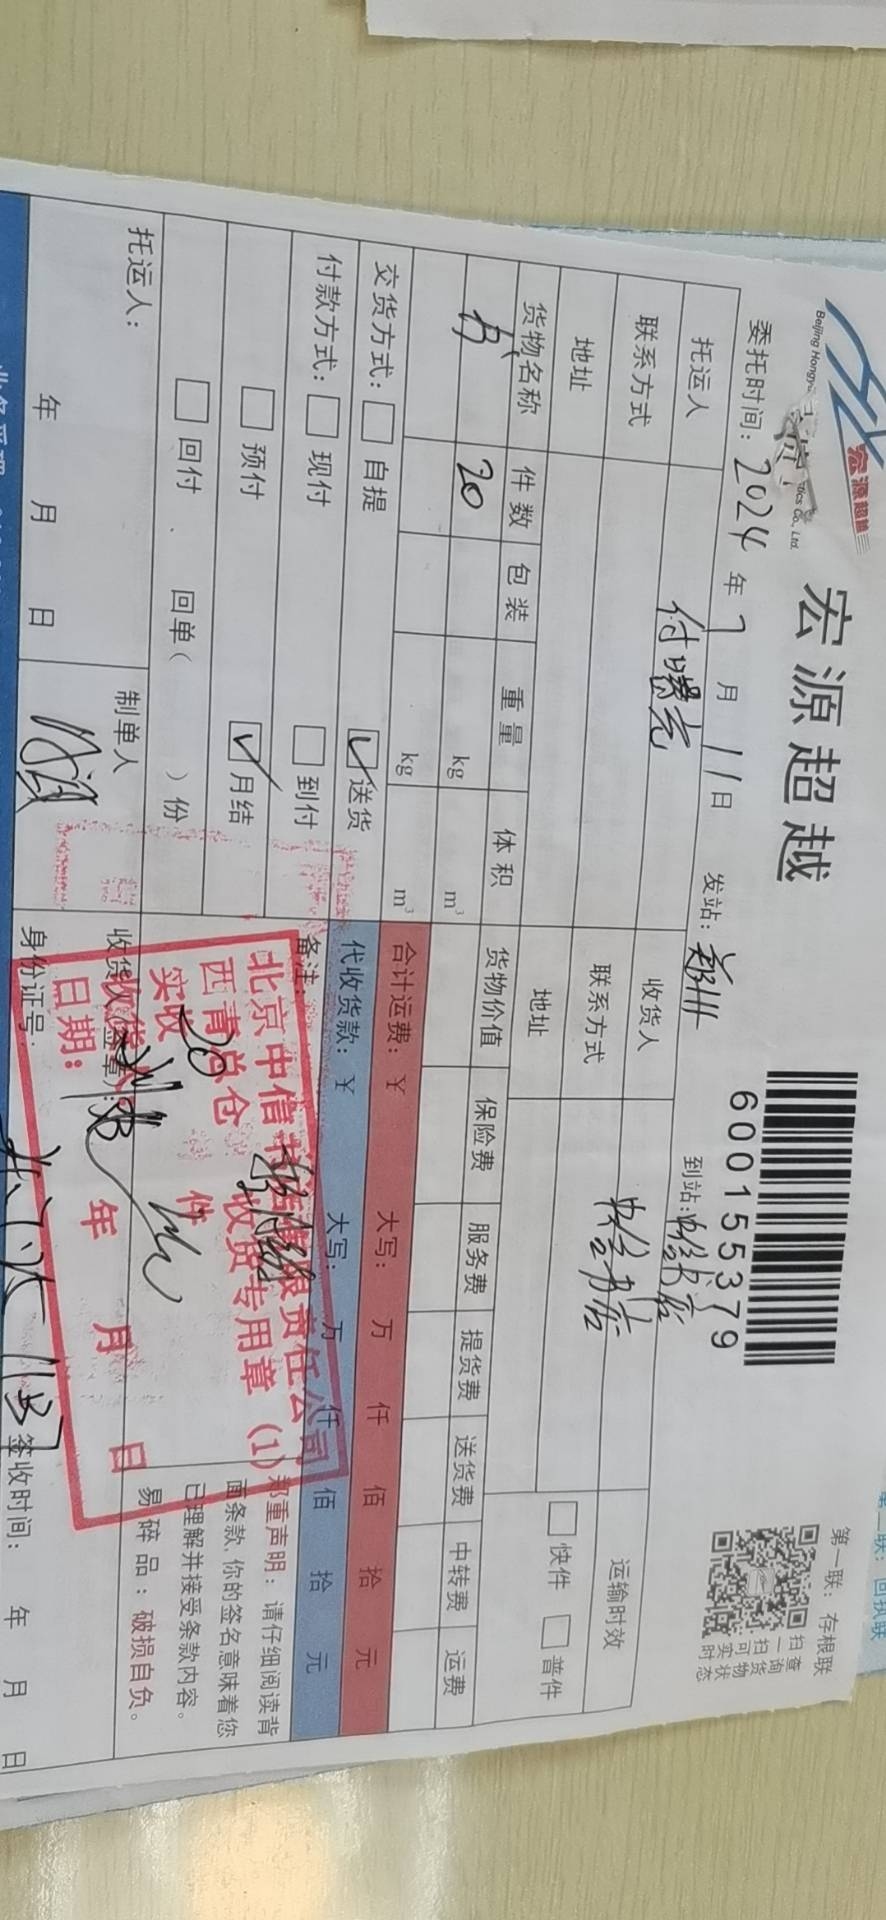 宏源超越
宏源超越
Beijing Hongy
tics Co., Ltd.
6001553379
第一联：存根联
第二联：回执联
扫查
一询
扫货
可物
实状
时态
委托时间：2024年7月11日 发站：郑州 到站：中信书店
托运人 付曙光 收货人 中信书店 运输时效
联系方式 联系方式
地址 地址 快件 普件
货物名称 件数 包装 重量 体积 货物价值 保险费 服务费 提货费 送货费 中转费 运费
书 20 kg m³
kg m³
合计运费：￥ 大写： 万 仟 佰 拾 元
交货方式： 自提 送货
代收货款：￥ 大写： 万 仟 佰 拾 元
付款方式： 现付 到付
预付 月结
回付 回单（ ）份
备注：
郑重声明：请仔细阅读背
面条款，你的签名意味着您
已理解并接受条款内容。
易碎品：破损自负。
托运人：
年 月 日
制单人
收货人（签章）：
身份证号：
签收时间： 年 月 日
北京中信书店有限责任公司
西青总仓 收货专用章（1）
实收 20 件
收货人：
日期： 年 月 日